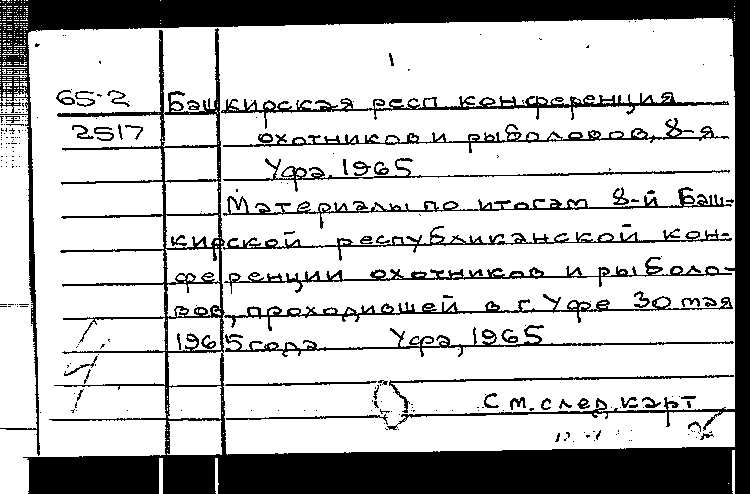 1
65-2 Башкирская респ конференция
2517 охотников и рыболовов, 8-я
Уфа. 1965
Материалы по итогам 8-й Баш-
кирской республиканской кон-
ференции охотников и рыболо-
вов, проходившей в г. Уфе 30 мая
1965 года. Уфа, 1965
См. след. карт